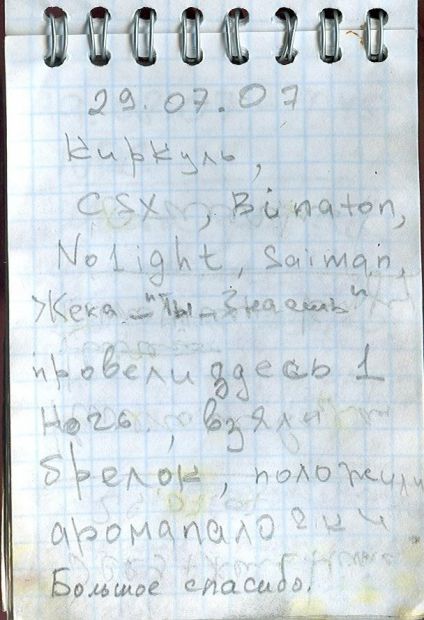 29.07.07
Киркуль,
CSX, Binaton,
No1ight, Saiman,
Жека_"Ты_Знаешь"
провели здесь 1
ночь, взяли
брелок, положили
аромапалочки
Большое спасибо.